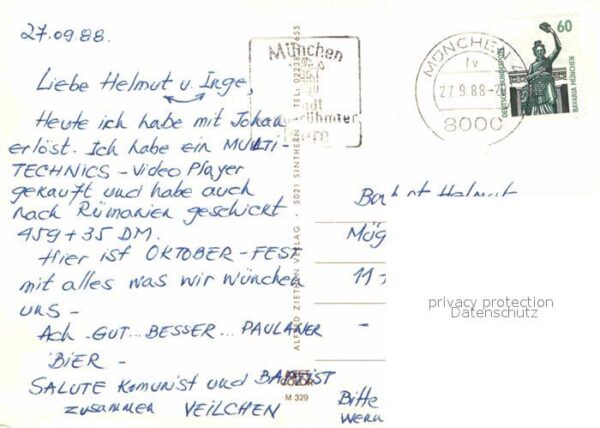 27.09.88.
Liebe Helmut u. Inge,
Heute ich habe mit Johan
erlöst. Ich habe ein MULTI-
TECHNICS - Video Player
gekauft und habe auch
nach Rümanien geschickt
459 + 35 DM.
Hier ist OKTOBER - FEST
mit alles was wir wünchen
uns -
Ach GUT... BESSER... PAULANER
BIER -
SALUTE Komunist und BAPTIST
zusammen VEILCHEN
ALFRED ZIETHEN VERLAG · 5021 SINTHERN · TEL.
COLOR
M 329
München
Stadt
berühmter
MÜNCHEN
fv
27.9.88-20
8000
60
DEUTSCHE BUNDESPOST
BAVARIA MÜNCHEN
Helmut
Mög
11
privacy protection
Datenschutz
Bitte